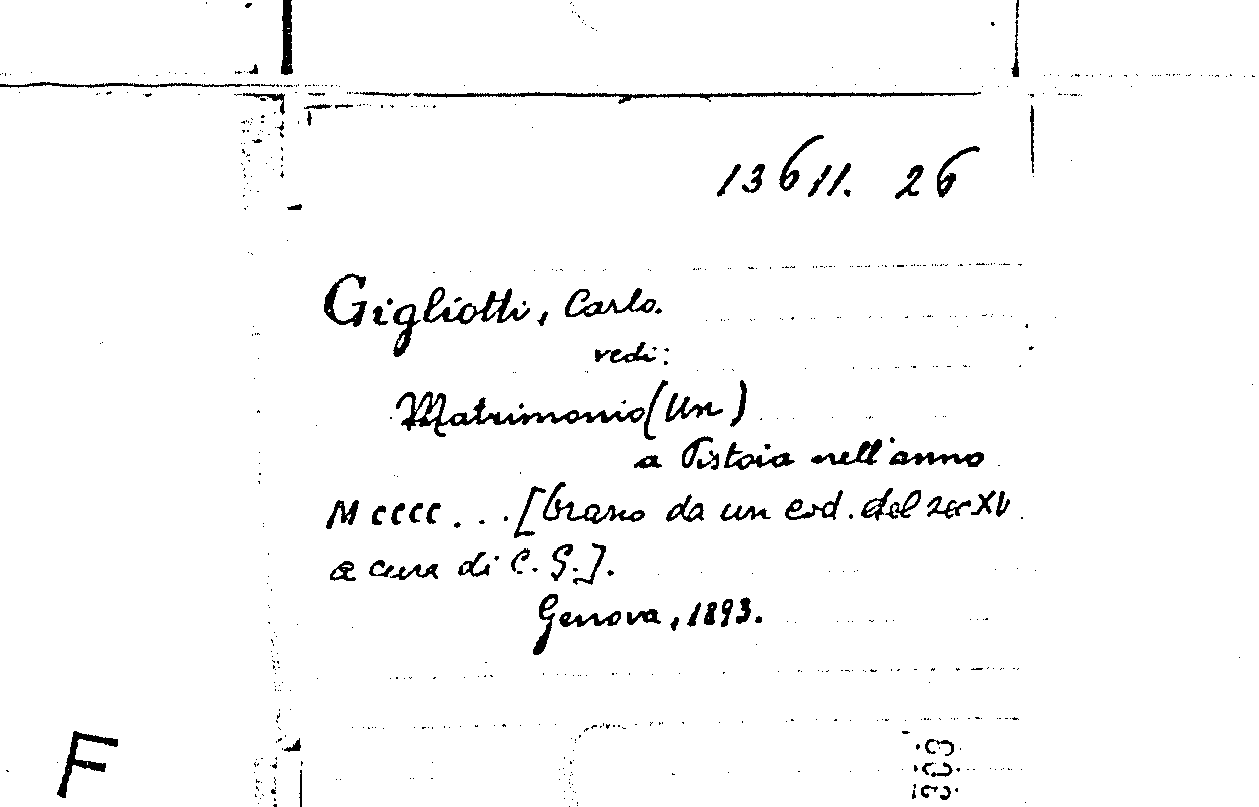 13611. 26
Gigliotti, Carlo.
vedi:
Matrimonio (Un)
a Pistoia nell'anno
MCCCC... [brano da un cod. del sec XV
a cura di C. G.].
Genova, 1893.
F